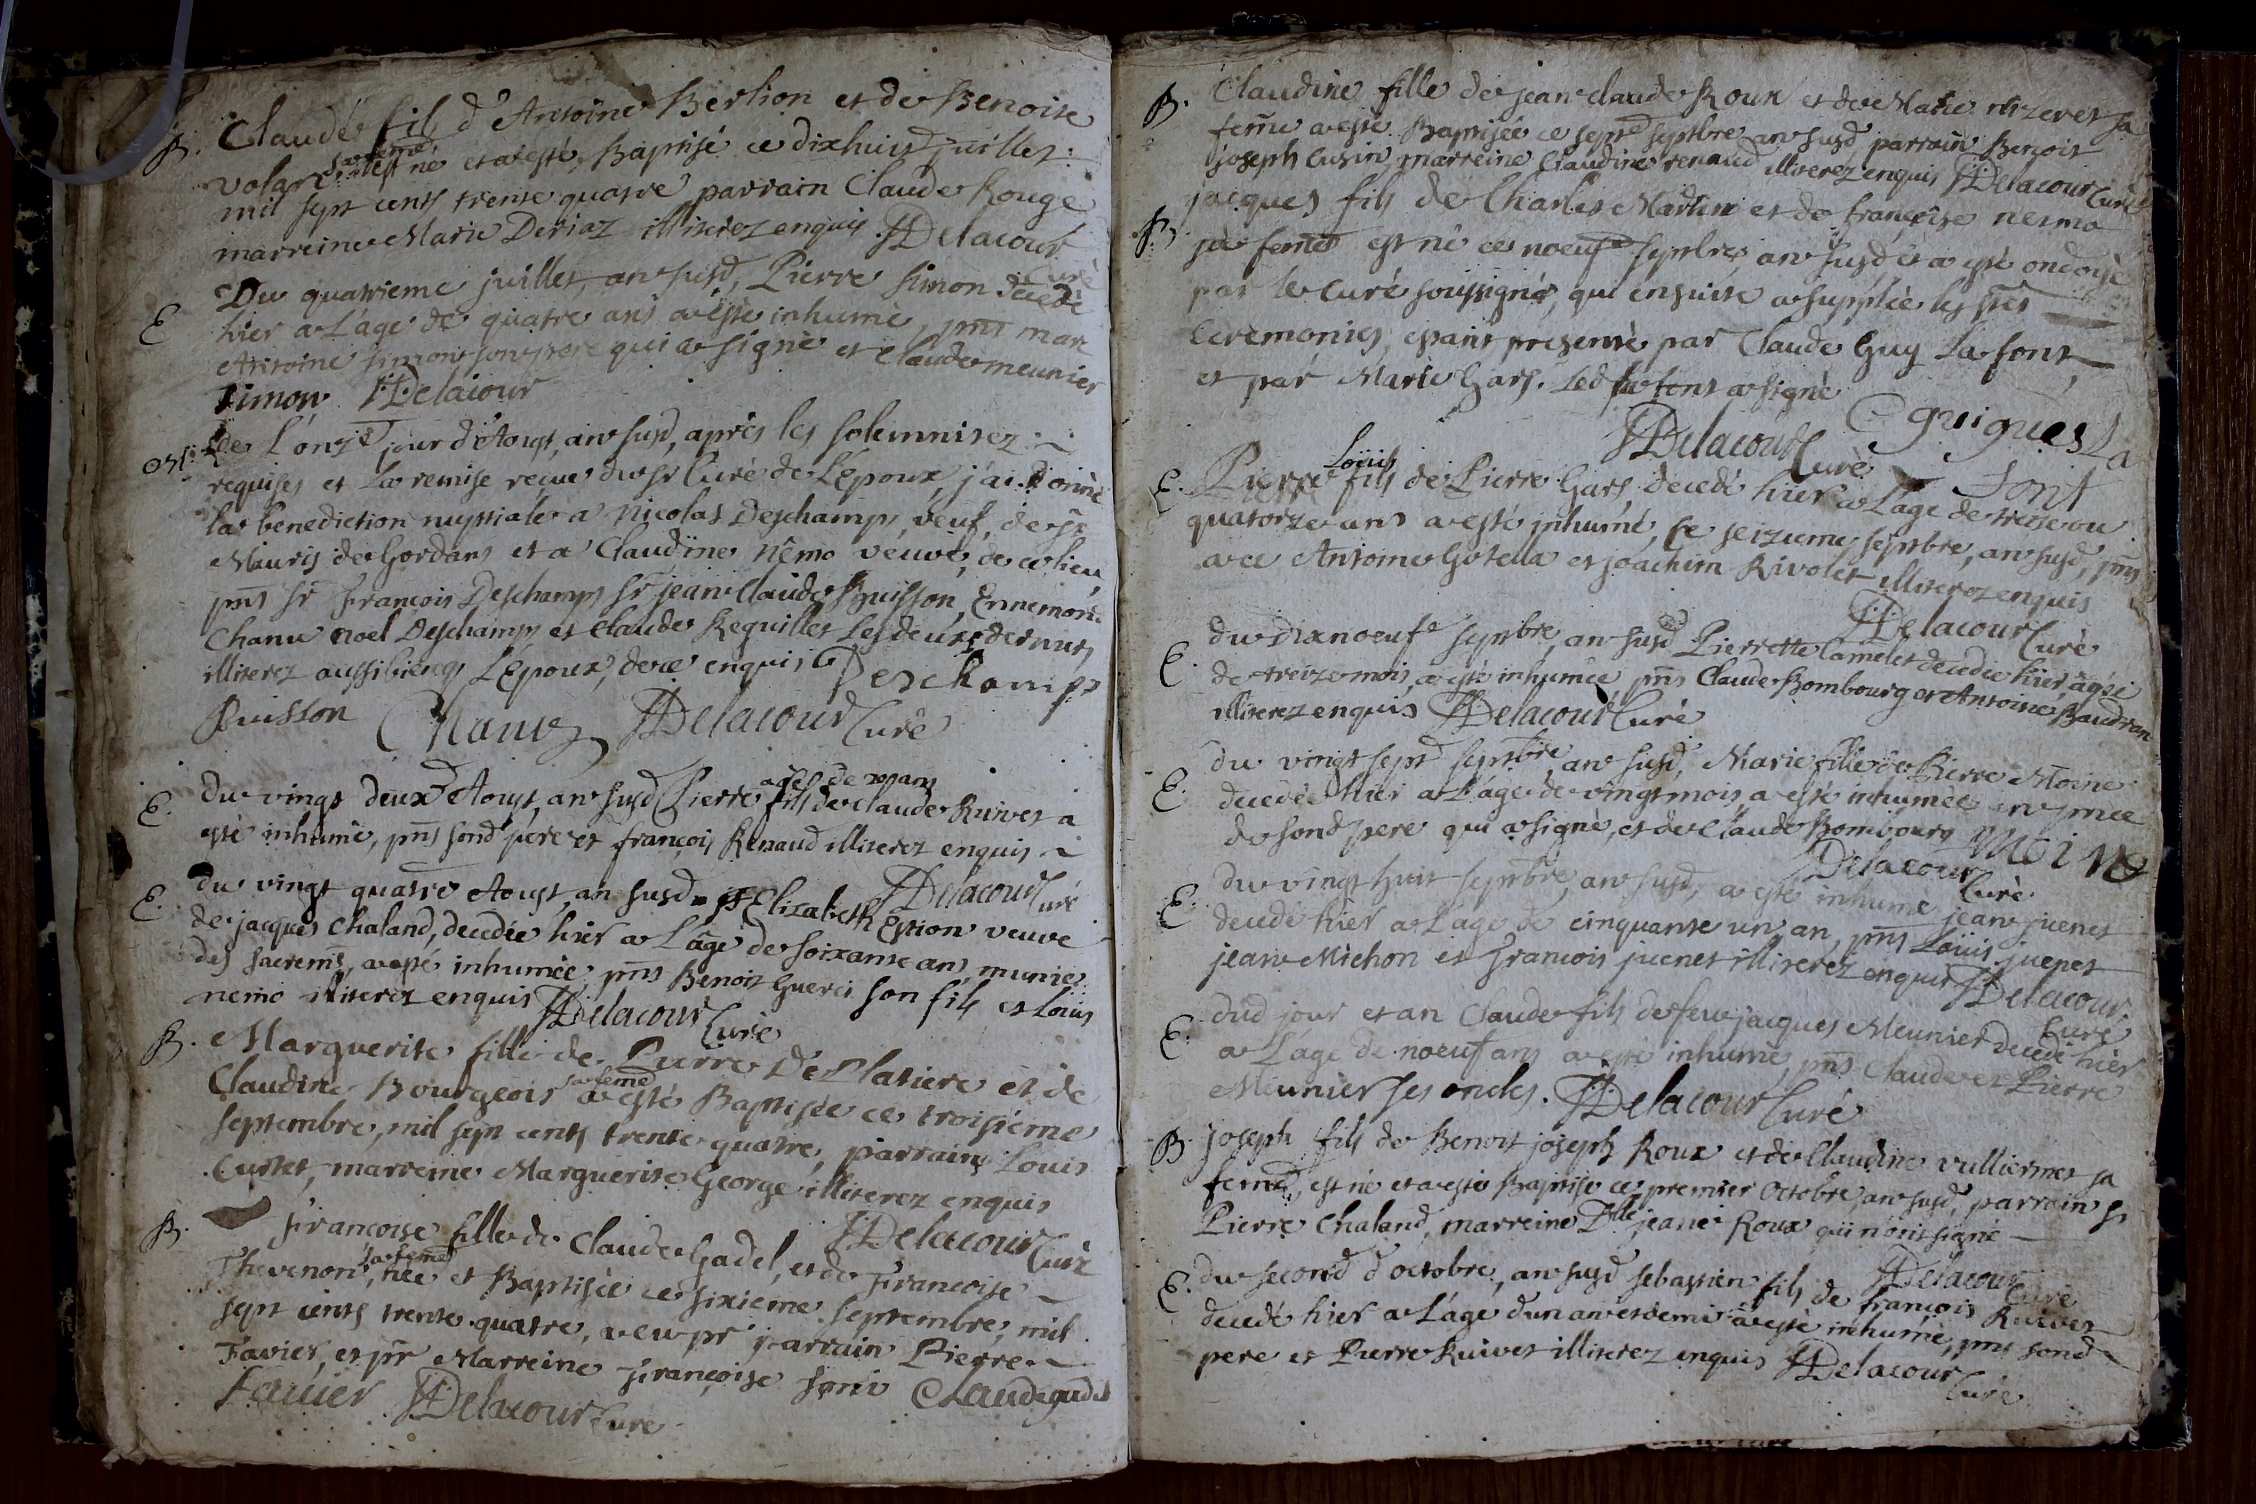 B. Claude fil d'Antoine Berlion et de Benoite
volant sa feme, est né et a esté Baptisé ce dixhuit juillet
mil sept cents trente quatre parrain Claude Rouge
marreine Marie Deriaz illiterez enquis. Delacour
Curé
E Du quatrieme juillet, an susd, Pierre simon decedé
hier a l'age de quatre ans a esté inhumé, pnts
Antoine simon son pere qui a signé et Claude meunier
simon Delacour
de l'onze jour d'Aoust, an susd, après les solemnitez
requises et la remise reçue du sr Curé de l'Epoux, j'ai donné
la benediction nuptiale a Nicolas Deschamps, veuf, de st
Mauris de Gordans et a Claudine nêmo veuve, de ce lieu,
pnts sr François Deschamps sr jean Claude Buisson, Ennemond
Chanu noel Deschamps et Claude Reguillet les deux derniers
illiterez aussi bien q l'Epoux, de ce enquis Deschamps
Buisson Chanu Delacour Curé
E. du vingt deux Aoust, an susd Pierre agé de ans fils de Claude Ruivet a
esté inhumé, pnts sond pere et françois Renaud illiterez enquis
Delacour Curé
E. du vingt quatre Aoust, an susd Elizabeth Estion veuve
de jacques Chaland, decedée hier a l'âge de soixante ans, munie
des sacremts, a esté inhumée pnts Benoit Guerci son fils et Loüis
nemo illiterez enquis Delacour Curé
B. Marguerite fille de Pierre De Platiere et de
Claudine Bourgeois sa feme a esté Baptisée ce troisième
septembre, mil sept cents trente quatre, parrain Louis
Curtet, marreine Marguerite George illiterez enquis
Delacour Curé
B. Françoise fille de Claude Gadel, et de Françoise
Thevenon, sa feme née et Baptisée ce sixieme septembre, mil
sept cents trente quatre, a eu pr parrain Pierre
Favier, et pr Marreine Françoise Claude gadel
Favier Delacour Curé
B. Claudine fille de jean claude Roux et de Marie sa
feme a esté Baptisée ce sept septbre an susd parrain Benoit
joseph Cusin marreine Claudine renaud illiterez enquis Delacour Curé
B jacques fils de Charles Martin et de françoise nesmo
sa feme est né ce noeuf septbre, an susd et a esté ondoyé
par le Curé soussigné, qui ensuite a supplée les stes
Ceremonies, etant presenté par Claude Guy Lafont
et par Marie Gars. Led Lafont a signé
Delacour Curé C guigues La
font
E. Pierre Loüis fils de Pierre Gars decedé hier a l'age de treize ou
quatorze ans a esté inhumé, ce seizieme septbre, an susd, pnts
a ce Antoine Gotella et joachim Rivolet illiterez enquis
Delacour Curé
E. du dixnoeuf septbre, an susd Pierrette Camelet decedée hier, âgée
de treize mois, a esté inhumée pnts Claude Bombourg et Antoine Baudran
illiterez enquis Delacour Curé
E. du vingt sept septbre an susd, Marie fille de Pierre Moine
decedée hier a l'âge de vingt mois, a esté inhumée en pnce
de sond pere qui a signé, et de Claude Bombourg Moine
Delacour Curé
E. du vingt huit septbre, an susd, a esté inhumé jean juenet
decedé hier a l'age de cinquante un an, pnts Loüis juenet
jean Michon et François juenet illiterez enquis Delacour
Curé
E. dud jour et an Claude fils de feu jacques Meunier decedé hier
a l'âge de noeuf ans a esté inhumé, pnts Claude et Pierre
Meunier ses oncles. Delacour Curé
B joseph fils de Benoit joseph Roux et de Claudine vulliermet sa
feme, est né et a esté Baptisé ce premier Octobre, an susd, parrain sr
Pierre Chaland, marreine Dlle jeane Roux qui n'ont signé
Delacour Curé
E. du second d'octobre, an susd sebastien fils de françois Ruivet
decedé hier a l'âge d'un an et demi a esté inhumé, pnts sond
pere et Pierre Ruivet illiterez enquis Delacour
Curé